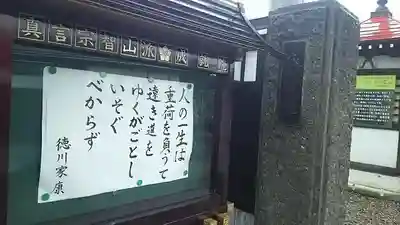 真言宗智山派 成
人の一生は
重荷を負うて
遠き道を
ゆくがごとし
いそぐ
べからず
徳川家康